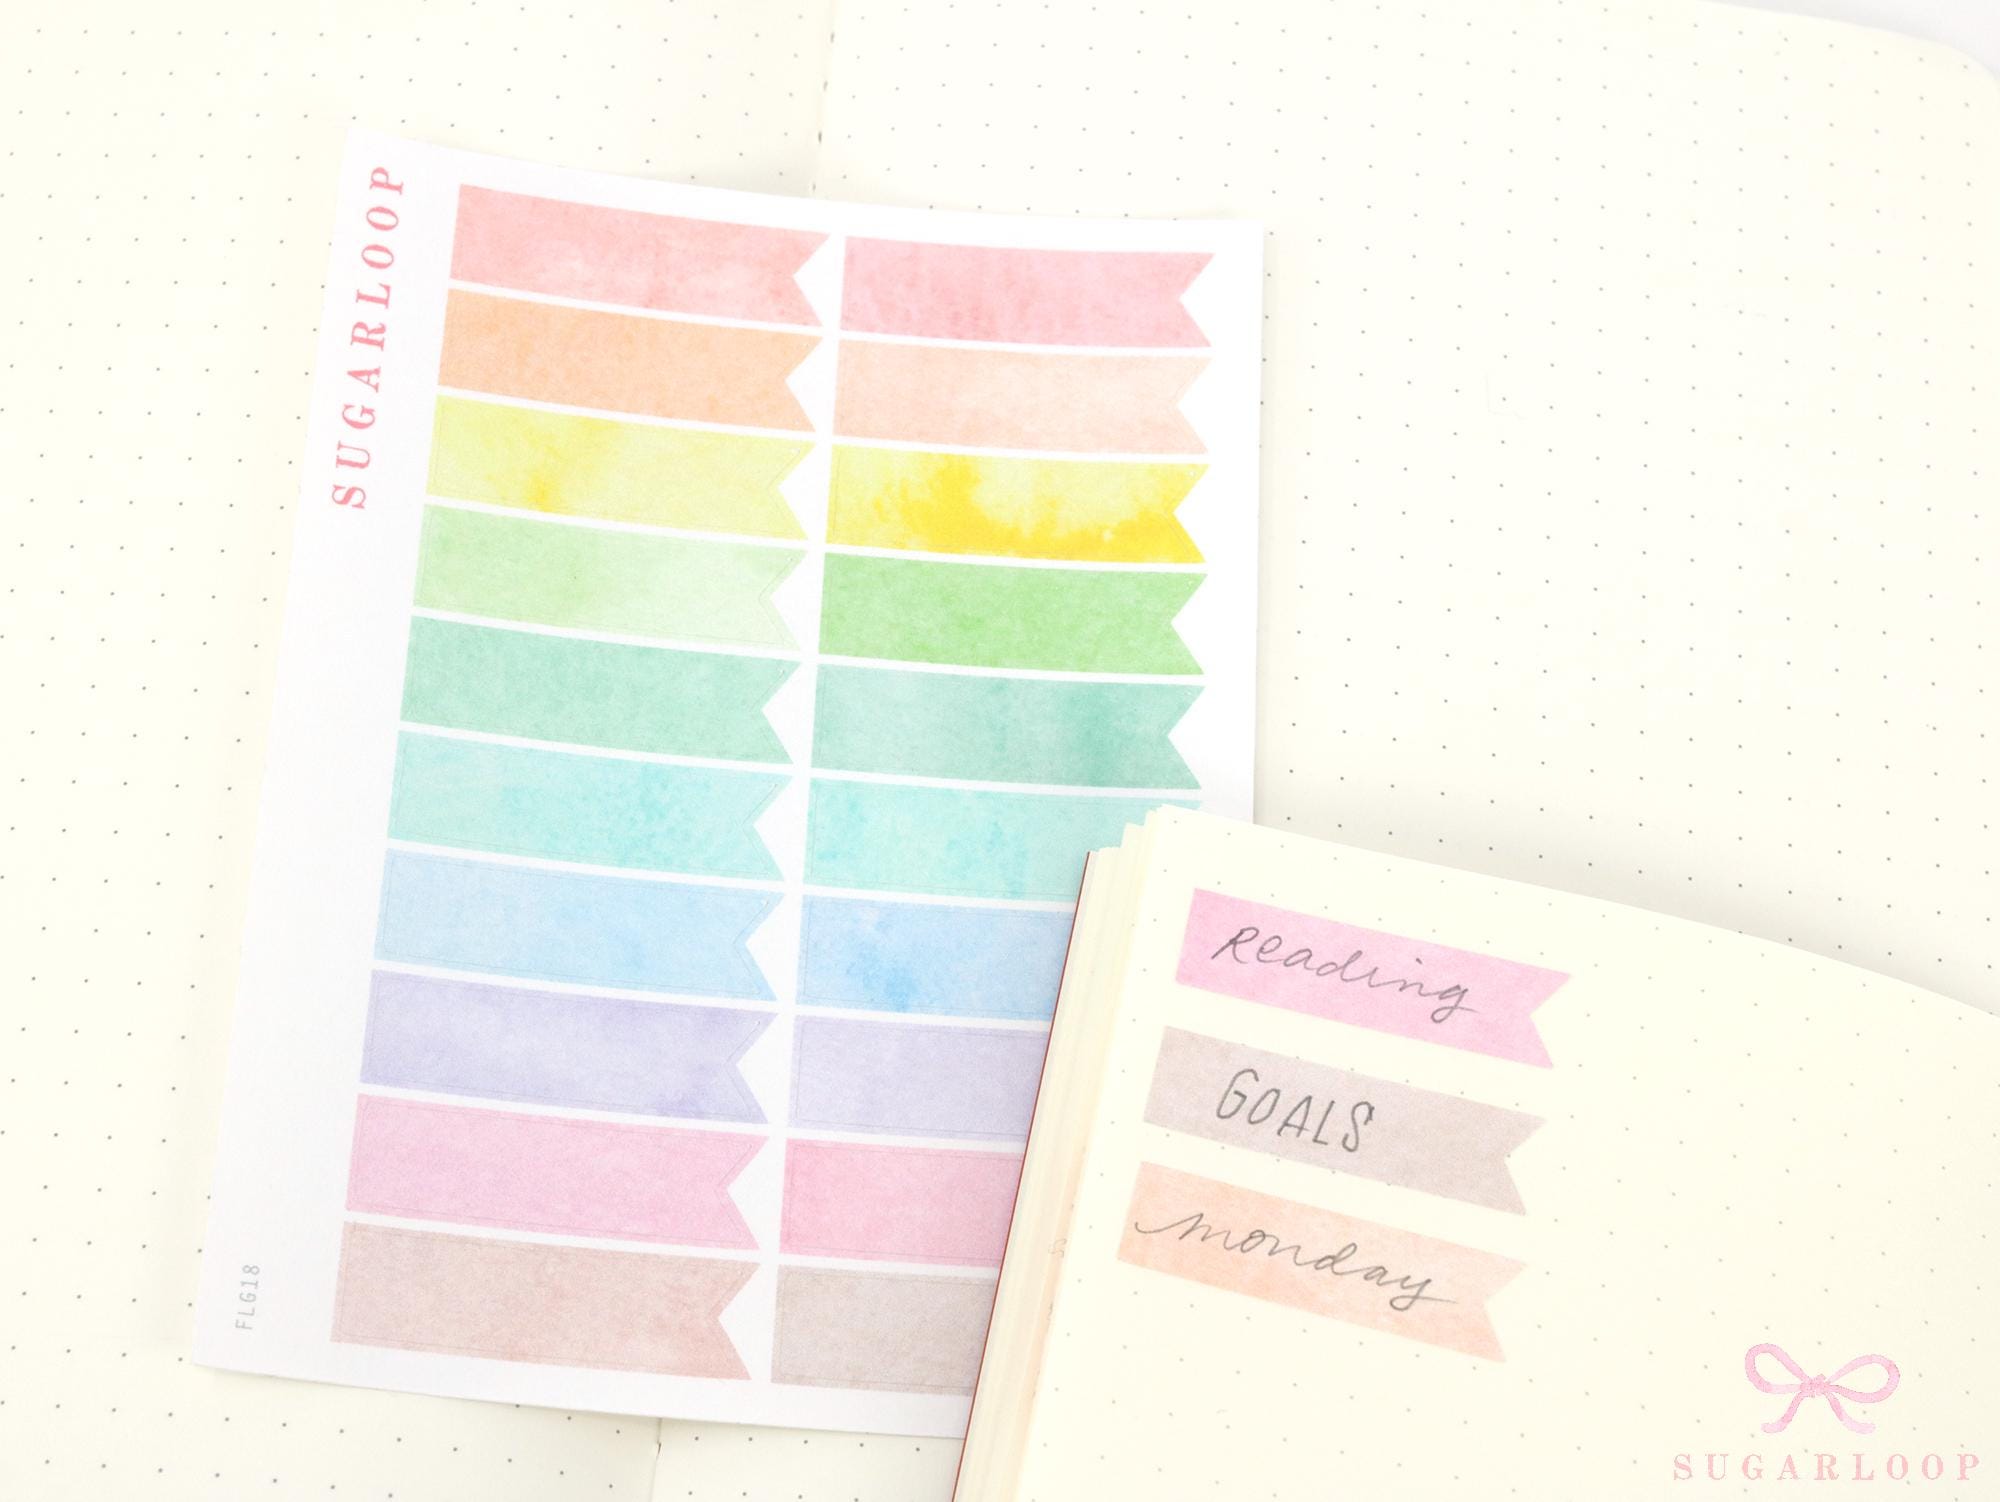 SUGARLOOP
FLG18
Reading
GOALS
monday
SUGARLOOP